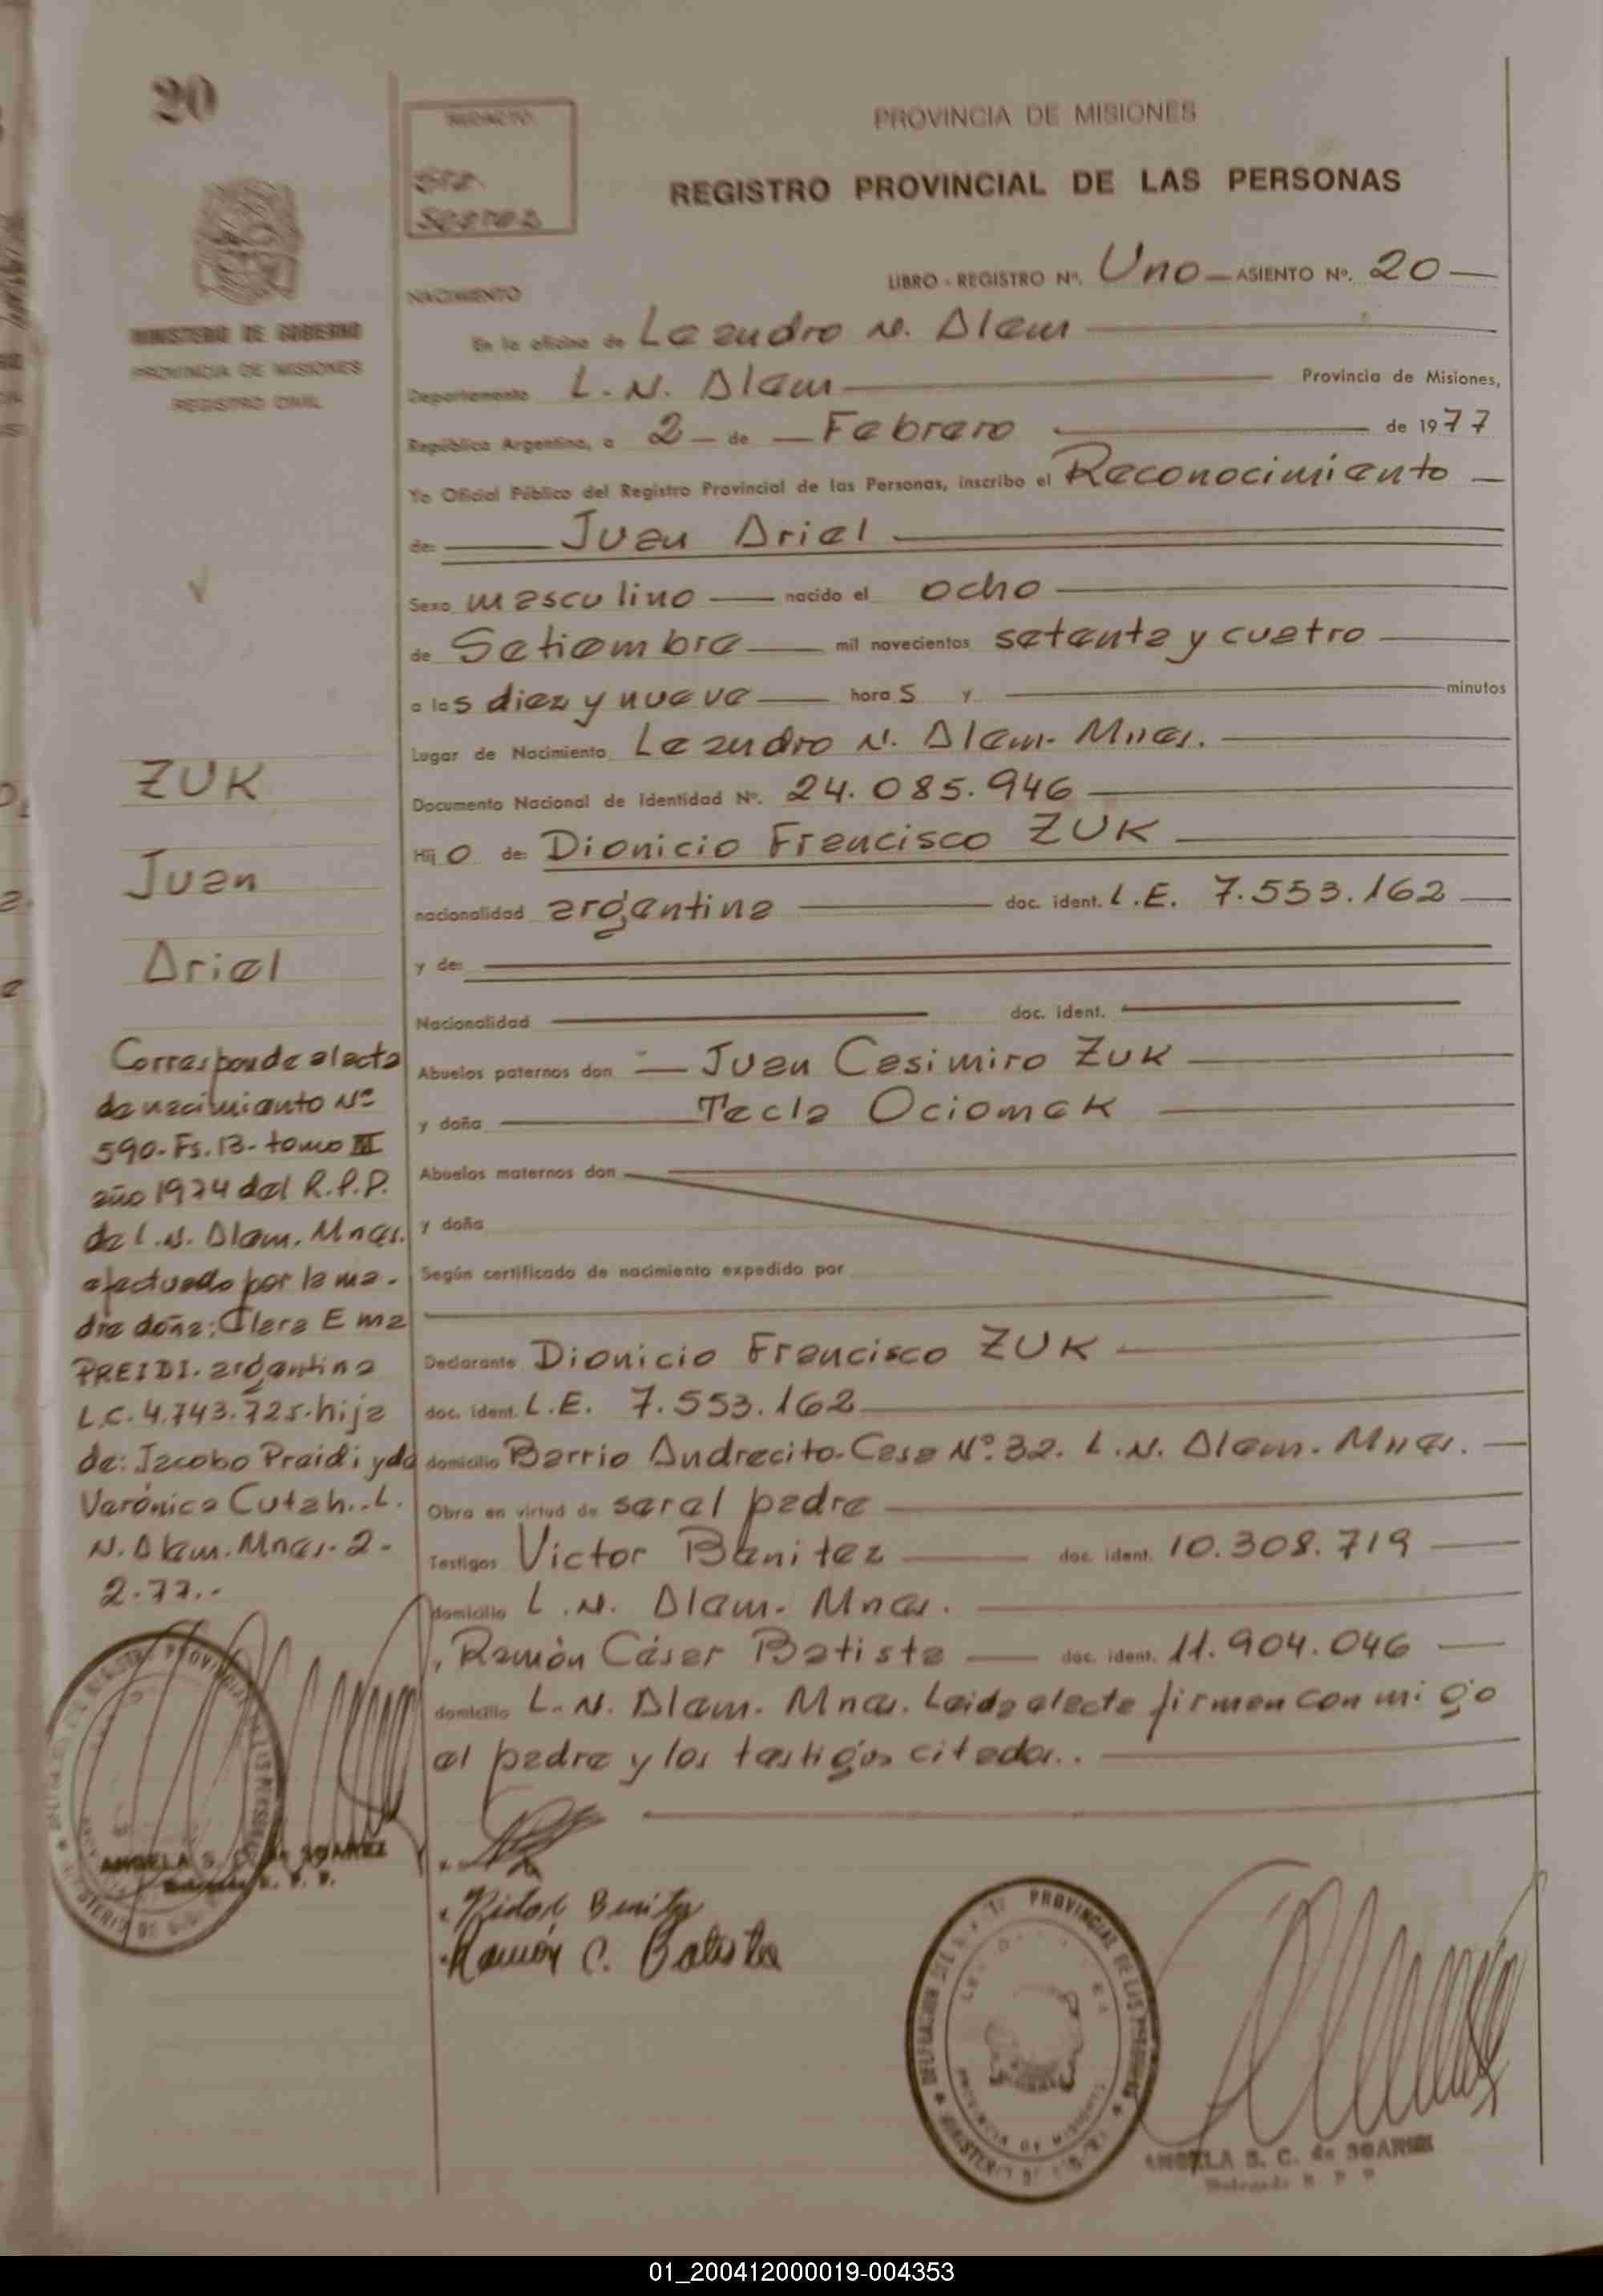 20
REDACTO
Sra.
Soarez
PROVINCIA DE MISIONES
REGISTRO PROVINCIAL DE LAS PERSONAS
MINISTERIO DE GOBIERNO
PROVINCIA DE MISIONES
REGISTRO CIVIL
LIBRO - REGISTRO Nº. Uno — ASIENTO Nº. 20 —
NACIMIENTO
En la oficina de Leandro N. Alem
Departamento L. N. Alem — Provincia de Misiones,
República Argentina, a 2 — de — Febrero — de 1977
Yo Oficial Público del Registro Provincial de las Personas, inscribo el Reconocimiento —
de: — Juan Ariel —
Sexo masculino — nacido el ocho —
de Setiembre — mil novecientos setenta y cuatro —
a las diez y nueve — horas y — minutos
Lugar de Nacimiento Leandro N. Alem. Mnes. —
Documento Nacional de Identidad Nº. 24.085.946 —
Hijo de: Dionicio Francisco ZUK —
nacionalidad argentina — doc. ident. L.E. 7.553.162 —
y de: —
Nacionalidad — doc. ident. —
Abuelos paternos don — Juan Casimiro ZUK —
y doña — Tecla Ociomek —
Abuelos maternos don —
y doña
Según certificado de nacimiento expedido por
Declarante Dionicio Francisco ZUK —
doc. ident. L.E. 7.553.162 —
domicilio Barrio Andrecito-Casa Nº.32. L.N. Alem. Mnes. —
Obra en virtud de ser el padre —
Testigos Victor Benitez — doc. ident. 10.308.719 —
domicilio L.N. Alem. Mnes. —
, Ramón Cáser Batista — doc. ident. 11.904.046 —
domicilio L.N. Alem. Mnes. Leida el acta firman con migo
el padre y los testigos citados.. —
ZUK
Juan
Ariel
Corresponde al acta
de nacimiento Nº
590-Fs.13-tomo III
año 1974 del R.P.P.
de L.N. Alem. Mnes.
efectuado por la ma-
dre doña: Clara Ema
PREIDI. argentina
L.C. 4.743.725. hija
de: Jacobo Preidi y de
Verónica Cutzh.. L.
N. Alem. Mnes. 2-
2.77..
ANGELA S. C. de SOAREZ
Delegada R. P. P.
Victor Benitez
Ramón C. Batista
DELEGACION DEL REGISTRO PROVINCIAL DE LAS PERSONAS
PROVINCIA DE MISIONES
MINISTERIO DE GOBIERNO
ANGELA S. C. de SOAREZ
Delegada R P P
01_200412000019-004353